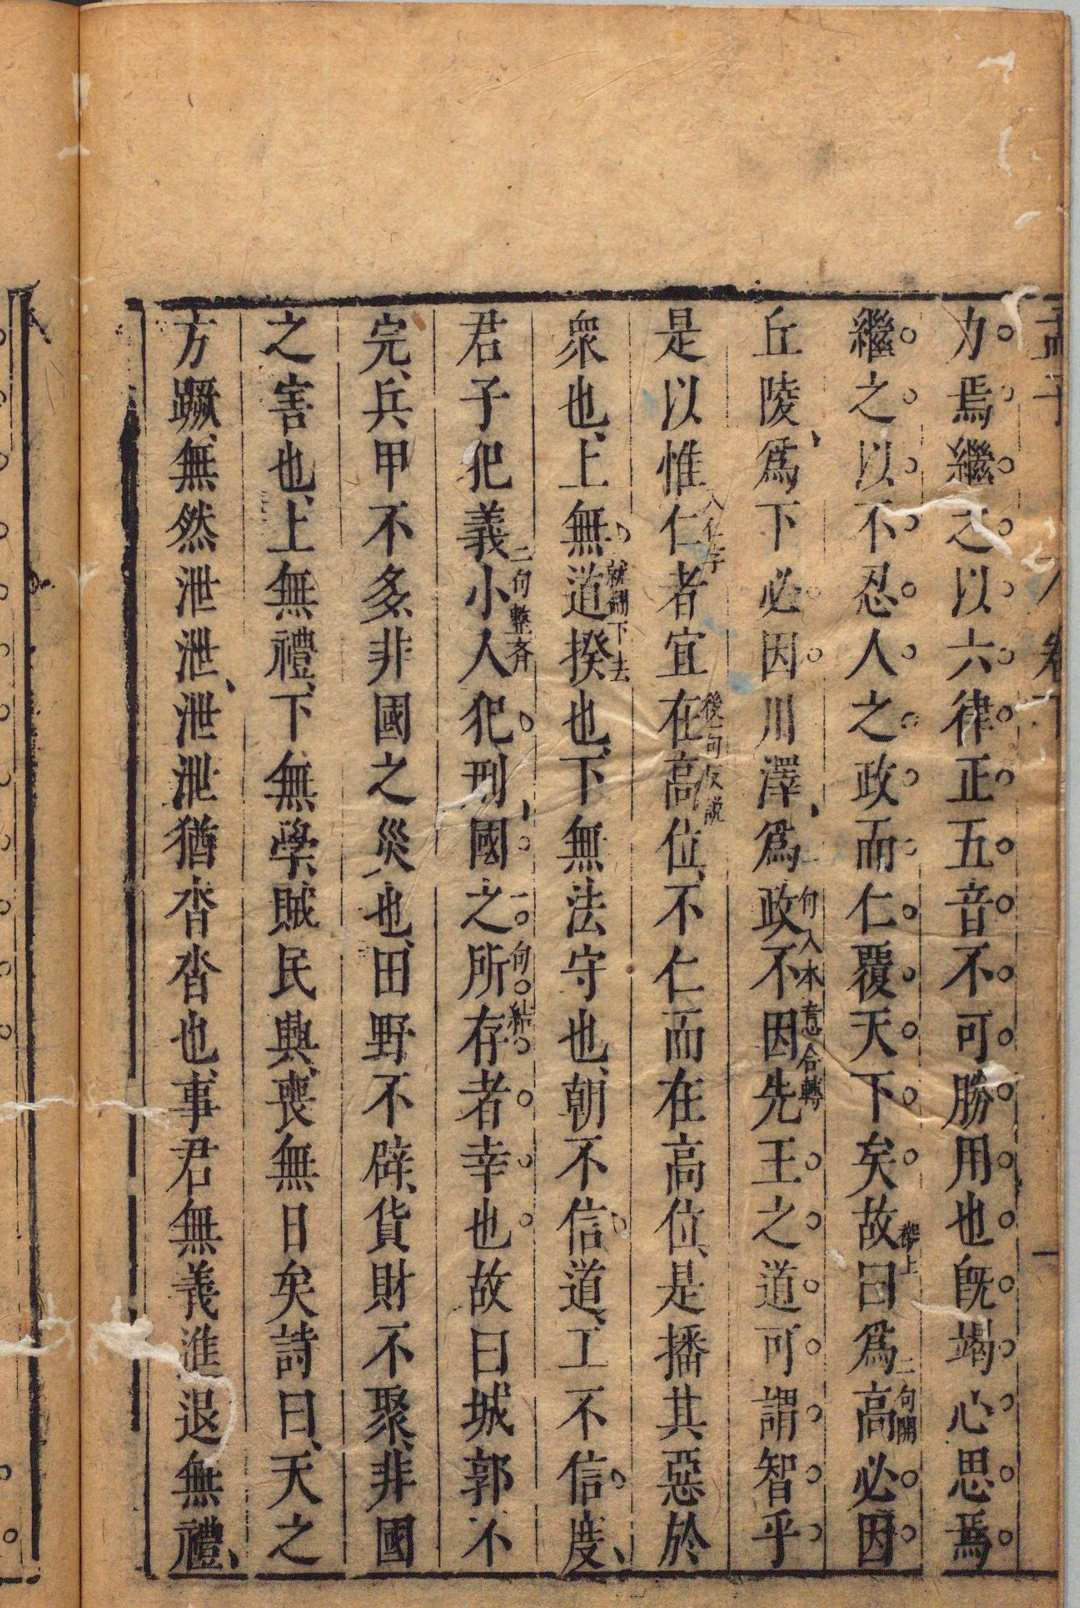 孟子 卷下 一
力焉繼之以六律正五音不可勝用也旣竭心思焉
繼之以不忍人之政而仁覆天下矣故曰爲高必因
丘陵爲下必因川澤爲政不因先王之道可謂智乎
是以惟仁者宜在高位不仁而在高位是播其惡於
衆也上無道揆也下無法守也朝不信道工不信度
君子犯義小人犯刑國之所存者幸也故曰城郭不
完兵甲不多非國之災也田野不辟貨財不聚非國
之害也上無禮下無學賊民興喪無日矣詩曰天之
方蹶無然泄泄泄泄猶沓沓也事君無義進退無禮
二句開
句入本意合轉
入仁字
後一句反說
就謂下去
二句整齊
一句結